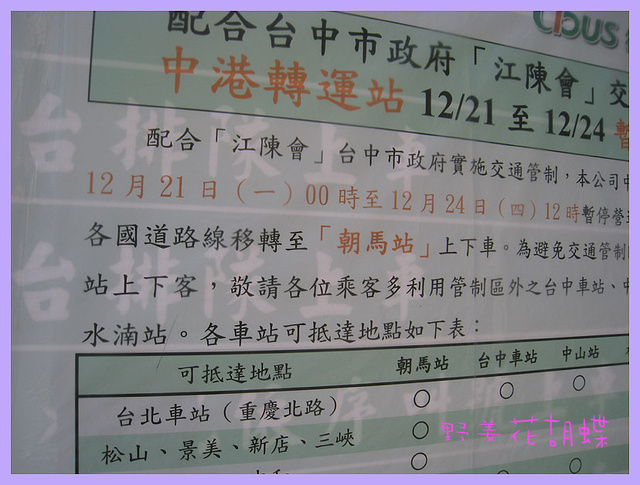 ibus
配合台中市政府「江陳會」交
中港轉運站 12/21 至 12/24 暫
配合「江陳會」台中市政府實施交通管制，本公司中
12月21日（一）00時至12月24日（四）12時暫停營
各國道路線移轉至「朝馬站」上下車。為避免交通管制
站上下客，敬請各位乘客多利用管制區外之台中車站、中
水湳站。各車站可抵達地點如下表：
可抵達地點 朝馬站 台中車站 中山站
台北車站（重慶北路） ○ ○ ○
松山、景美、新店、三峽 ○
野姜花胡蝶
台排隊上車
台排隊上車